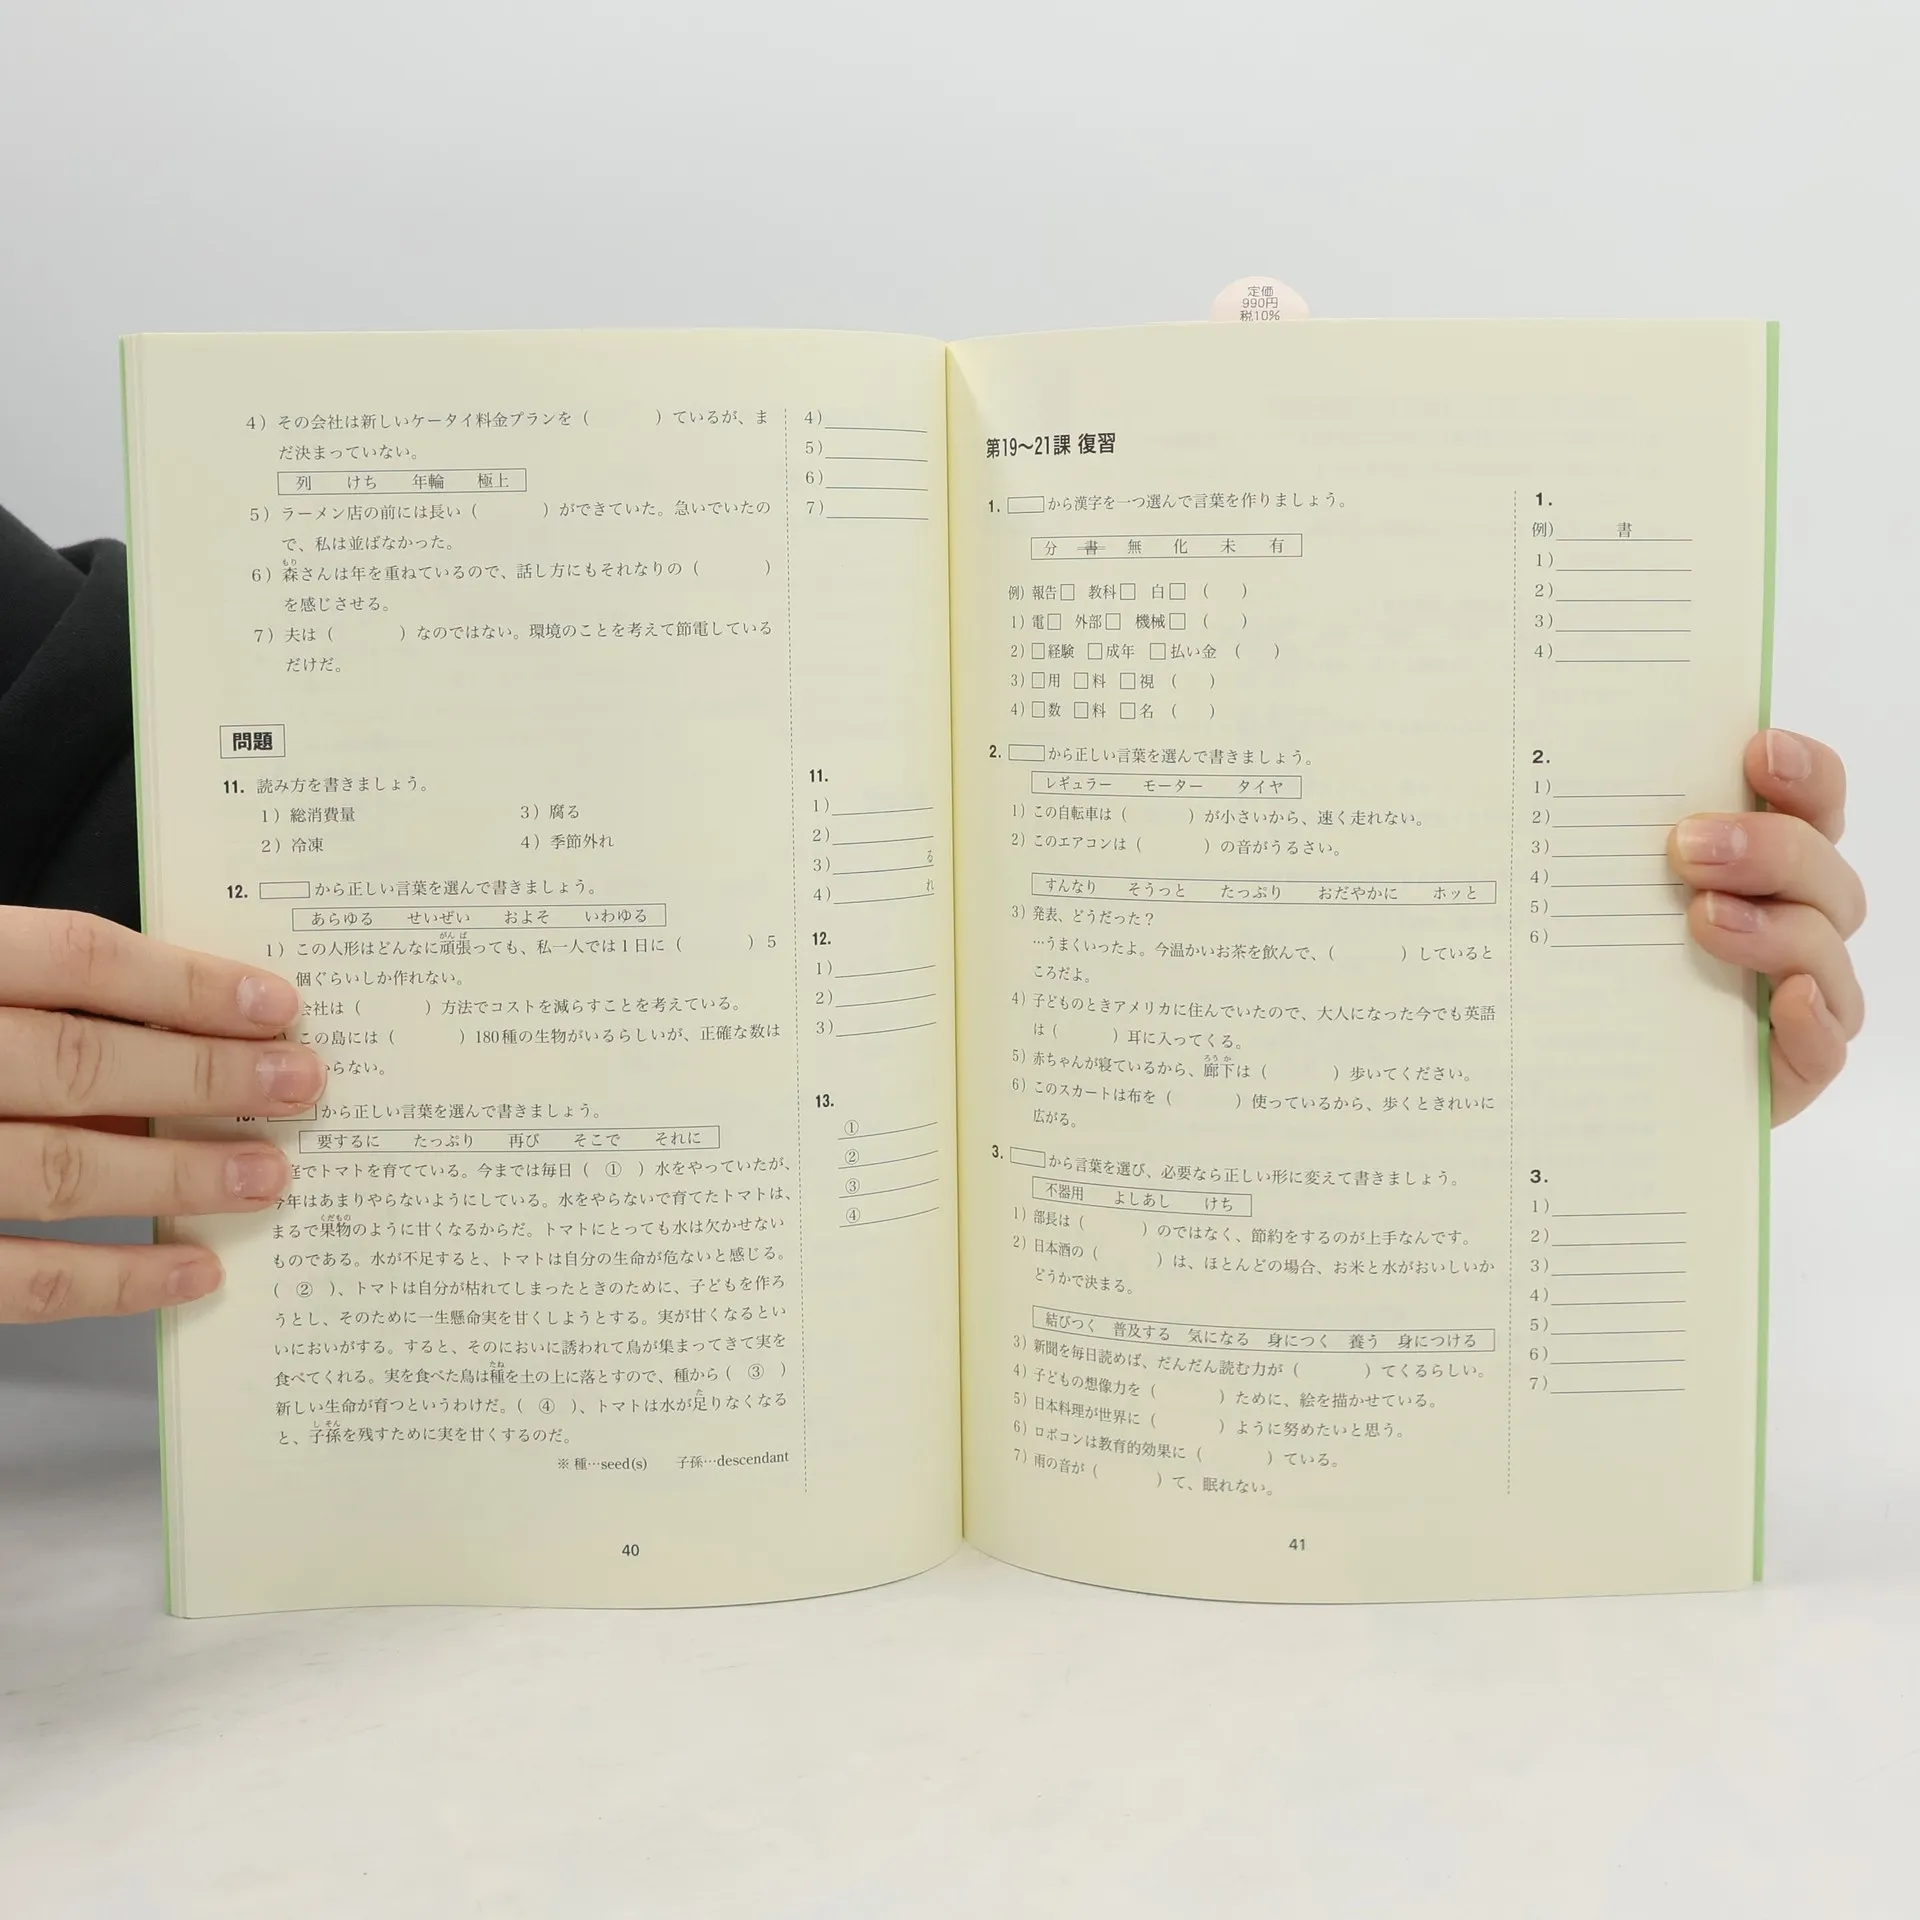 定価
990円
税10%
4）その会社は新しいケータイ料金プランを（　　　）ているが、ま
だ決まっていない。
列　けち　年輪　極上
5）ラーメン店の前には長い（　　　）ができていた。急いでいたの
で、私は並ばなかった。
もり
6）森さんは年を重ねているので、話し方にもそれなりの（　　　）
を感じさせる。
7）夫は（　　　）なのではない。環境のことを考えて節電している
だけだ。
4）
5）
6）
7）
問題
11. 読み方を書きましょう。
1）総消費量　3）腐る
2）冷凍　4）季節外れ
12. から正しい言葉を選んで書きましょう。
あらゆる　せいぜい　およそ　いわゆる
がんば
1）この人形はどんなに頑張っても、私一人では1日に（　　　）5
個ぐらいしか作れない。
会社は（　　　）方法でコストを減らすことを考えている。
この島には（　　　）180種の生物がいるらしいが、正確な数は
らない。
から正しい言葉を選んで書きましょう。
要するに　たっぷり　再び　そこで　それに
庭でトマトを育てている。今までは毎日（　①　）水をやっていたが、
今年はあまりやらないようにしている。水をやらないで育てたトマトは、
くだもの
まるで果物のように甘くなるからだ。トマトにとっても水は欠かせない
ものである。水が不足すると、トマトは自分の生命が危ないと感じる。
（　②　）、トマトは自分が枯れてしまったときのために、子どもを作ろ
うとし、そのために一生懸命実を甘くしようとする。実が甘くなるとい
いにおいがする。すると、そのにおいに誘われて鳥が集まってきて実を
たね
食べてくれる。実を食べた鳥は種を土の上に落とすので、種から（　③　）
た
新しい生命が育つというわけだ。（　④　）、トマトは水が足りなくなる
しそん
と、子孫を残すために実を甘くするのだ。
※ 種…seed(s)　子孫…descendant
11.
1）
2）
3）　る
4）　れ
12.
1）
2）
3）
13.
①
②
③
④
40
第19〜21課 復習
1. から漢字を一つ選んで言葉を作りましょう。
分　書　無　化　未　有
例）報告□　教科□　白□（　　）
1）電□　外部□　機械□（　　）
2）□経験　□成年　□払い金（　　）
3）□用　□料　□視（　　）
4）□数　□料　□名（　　）
2. から正しい言葉を選んで書きましょう。
レギュラー　モーター　タイヤ
1）この自転車は（　　　）が小さいから、速く走れない。
2）このエアコンは（　　　）の音がうるさい。
すんなり　そうっと　たっぷり　おだやかに　ホッと
3）発表、どうだった？
…うまくいったよ。今温かいお茶を飲んで、（　　　）していると
ころだよ。
4）子どものときアメリカに住んでいたので、大人になった今でも英語
は（　　　）耳に入ってくる。
ろうか
5）赤ちゃんが寝ているから、廊下は（　　　）歩いてください。
6）このスカートは布を（　　　）使っているから、歩くときれいに
広がる。
3. から言葉を選び、必要なら正しい形に変えて書きましょう。
不器用　よしあし　けち
1）部長は（　　　）のではなく、節約をするのが上手なんです。
2）日本酒の（　　　）は、ほとんどの場合、お米と水がおいしいか
どうかで決まる。
結びつく　普及する　気になる　身につく　養う　身につける
3）新聞を毎日読めば、だんだん読む力が（　　　）てくるらしい。
4）子どもの想像力を（　　　）ために、絵を描かせている。
5）日本料理が世界に（　　　）ように努めたいと思う。
6）ロボコンは教育的効果に（　　　）ている。
7）雨の音が（　　　）て、眠れない。
1.
例）　書
1）
2）
3）
4）
2.
1）
2）
3）
4）
5）
6）
3.
1）
2）
3）
4）
5）
6）
7）
41